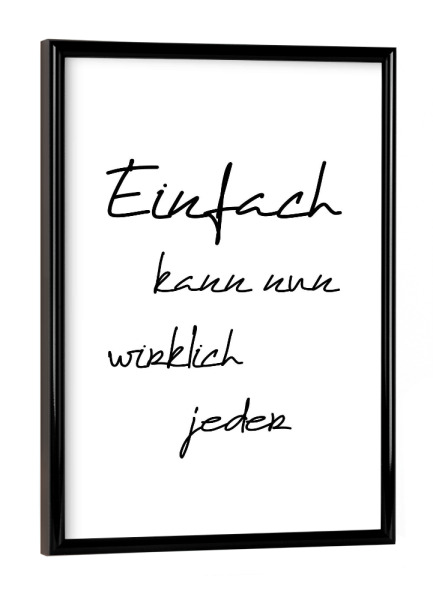 Einfach
kann nun
wirklich
jeder